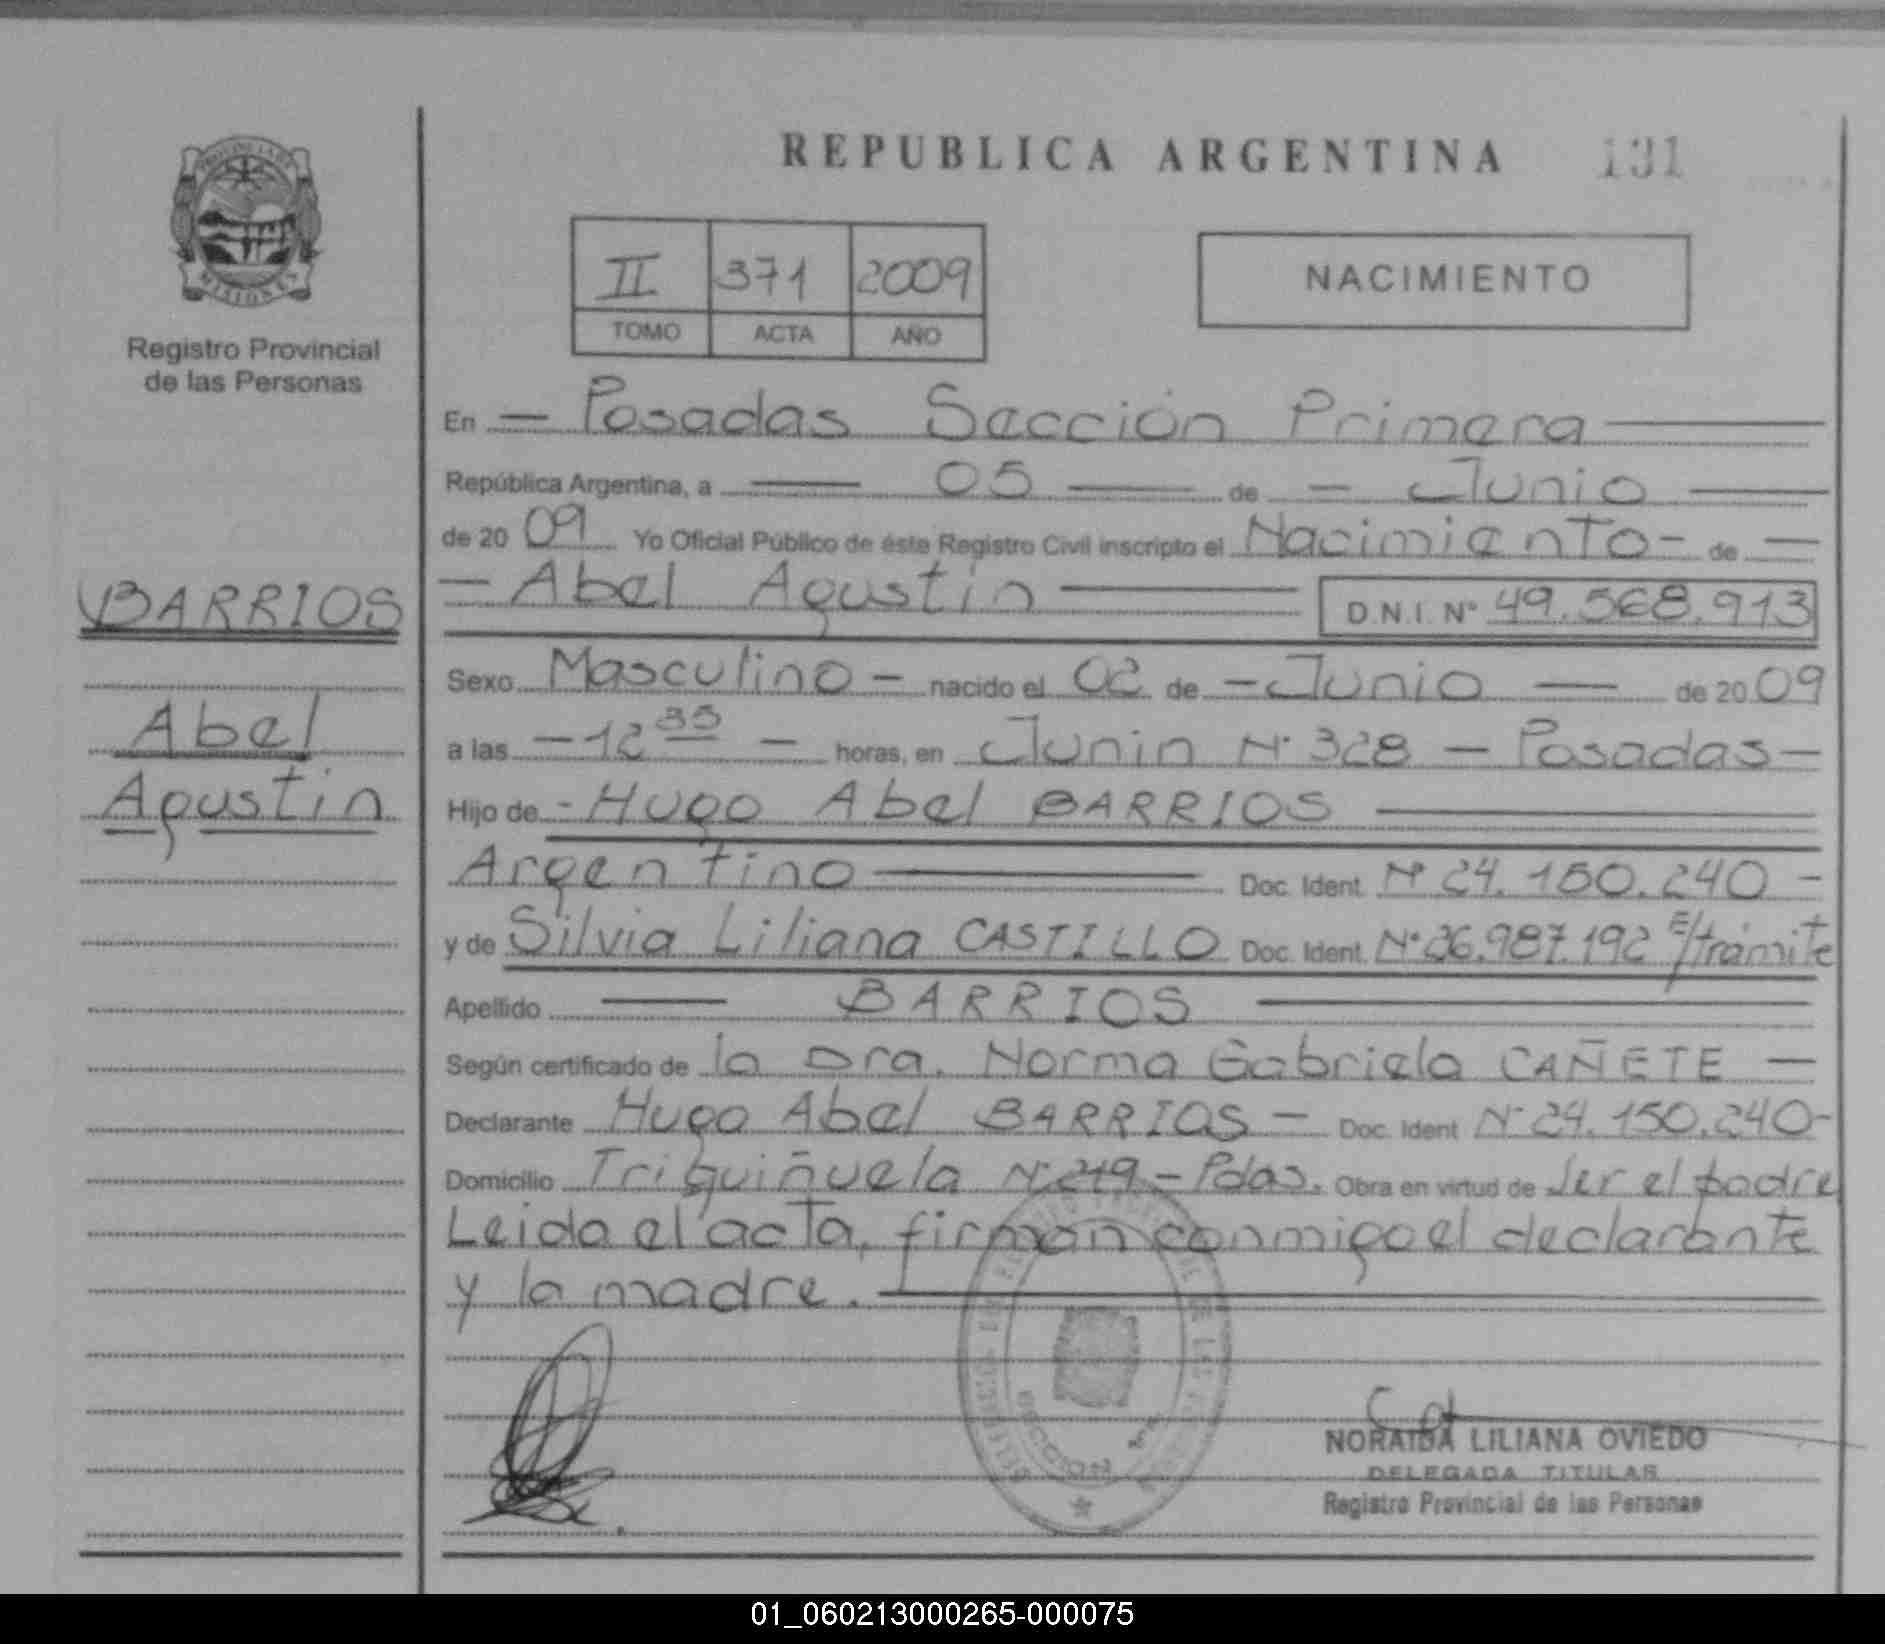 REPUBLICA ARGENTINA 131
PROVINCIA DE
MISIONES
Registro Provincial
de las Personas
II 371 2009
TOMO ACTA AÑO
NACIMIENTO
En — Posadas Sección Primera —
República Argentina, a — 05 — de — Junio —
de 20 09 Yo Oficial Público de éste Registro Civil inscripto el Nacimiento - de —
— Abel Agustin — D.N.I. Nº 49.568.913
BARRIOS
Abel
Agustin
Sexo Masculino — nacido el 02 de — Junio — de 20 09
a las — 12 35 — horas, en Junin Nº 328 — Posadas —
Hijo de - Hugo Abel BARRIOS —
Argentino — Doc. Ident. Nº 24.150.240 —
y de Silvia Liliana CASTILLO Doc. Ident. Nº 26.987.192 E/trámite
Apellido — BARRIOS —
Según certificado de la Dra. Norma Gabriela CAÑETE —
Declarante Hugo Abel BARRIOS — Doc. Ident Nº 24.150.240 -
Domicilio Triguiñuela Nº 219 — Pdas. Obra en virtud de ser el padre
Leida el acta, firman conmigo el declarante
y la madre. —
NORAIDA LILIANA OVIEDO
DELEGADA TITULAR
Registro Provincial de las Personas
01_060213000265-000075